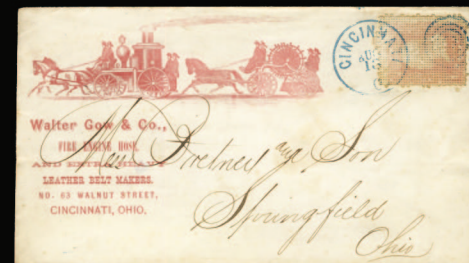 CINCINNATI
O
Walter Gow & Co.,
FIRE ENGINE HOSE,
AND EXTRA HEAVY
LEATHER BELT MAKERS.
NO. 83 WALNUT STREET,
CINCINNATI, OHIO.
& Son
Springfield
Ohio